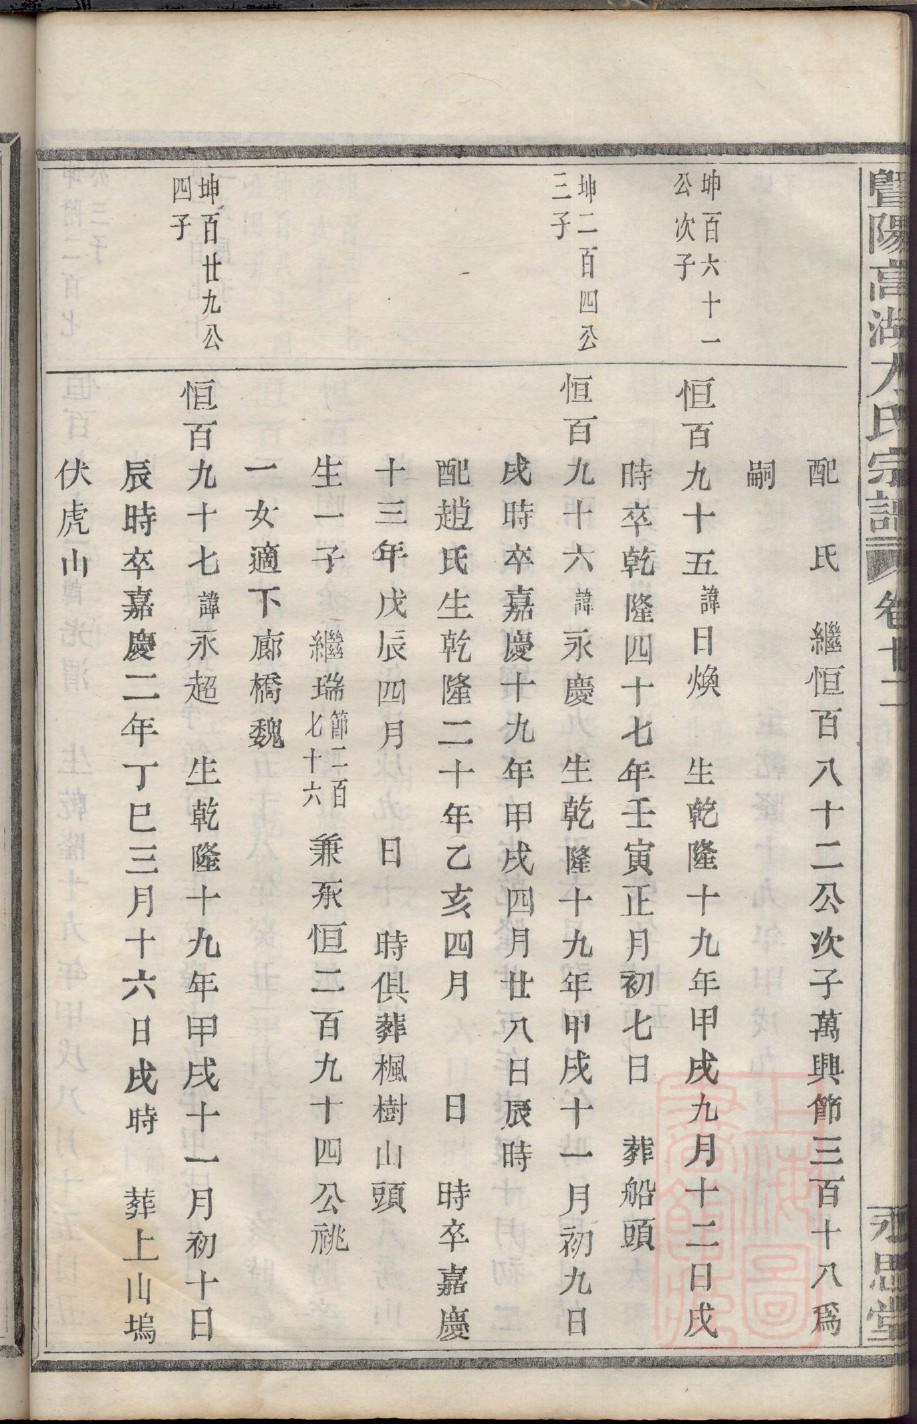 暨陽高湖方氏宗譜 卷十二 永思堂
配 氏 繼恒百八十二公次子萬興節三百十八爲
嗣
坤百六十一
公次子
恒百九十五諱日煥 生乾隆十九年甲戌九月十二日戌
時卒乾隆四十七年壬寅正月初七日 葬船頭
坤二百四公
三子
恒百九十六諱永慶 生乾隆十九年甲戌十一月初九日
戌時卒嘉慶十九年甲戌四月廿八日辰時
配趙氏生乾隆二十年乙亥四月 日 時卒嘉慶
十三年戊辰四月 日 時俱葬楓樹山頭
生一子 繼瑞節二百七十六 兼承恒二百九十四公祧
一女適下廊橋魏
坤百廿九公
四子
恒百九十七諱永超 生乾隆十九年甲戌十一月初十日
辰時卒嘉慶二年丁巳三月十六日戌時 葬上山塢
伏虎山